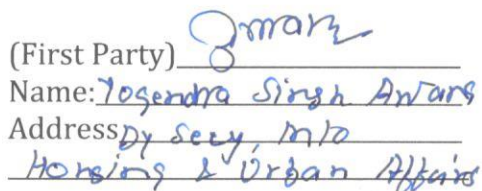 (First Party)
Name: Yogendra Singh
Address Dy Secy, M/o
Housing & Urban Affairs